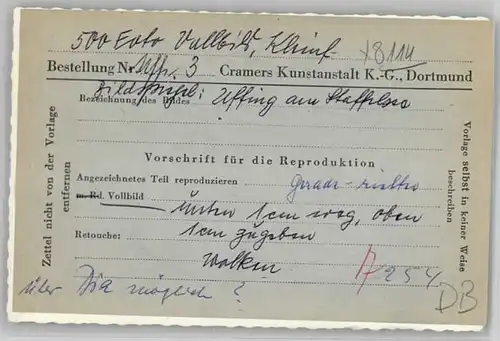 500 Foto Vollbild,
x8114
Bestellung Nr. Uffi. 3 Cramers Kunstanstalt K.-G., Dortmund
Bezeichnung des Bildes Uffing am Staffelsee
Vorschrift für die Reproduktion
Angezeichneten Teil reproduzieren
m. Rd. Vollbild
unten 1cm weg, oben
1cm zugeben
Retouche:
Wolken
A 254
über Dia möglich ?
DB
Zettel nicht von der Vorlage
entfernen
Vorlage selbst in keiner Weise
beschreiben